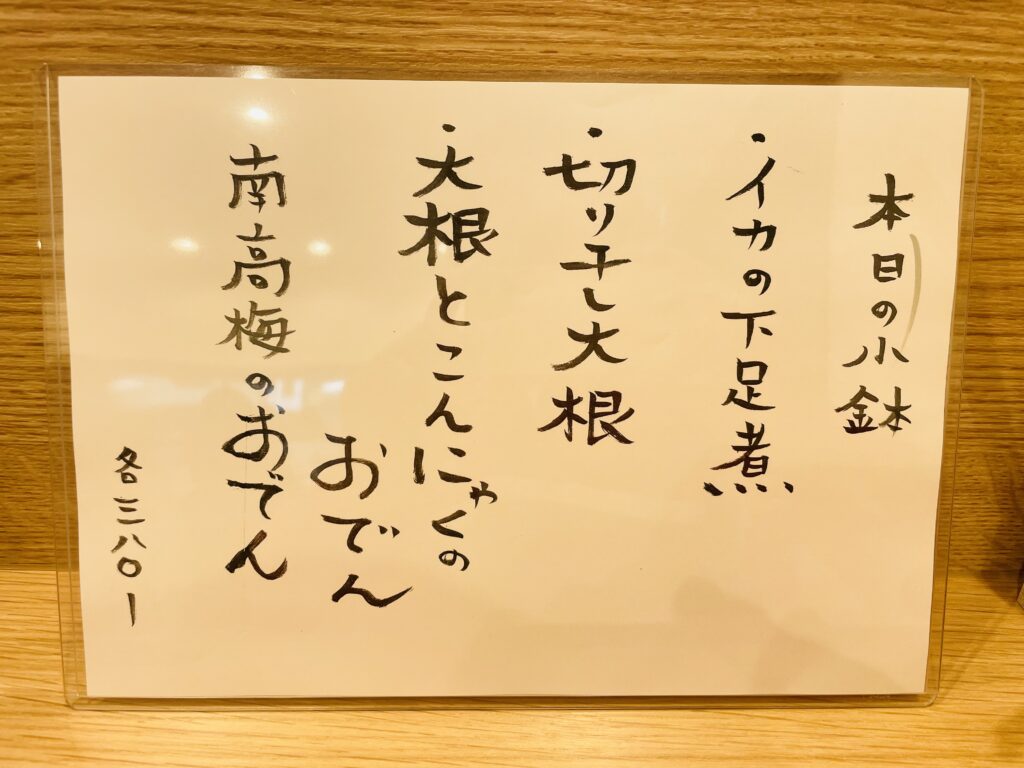 本日の小鉢
・イカの下足煮
・切り干し大根
・大根とこんにゃくの
おでん
南高梅のおでん
各三八〇ー